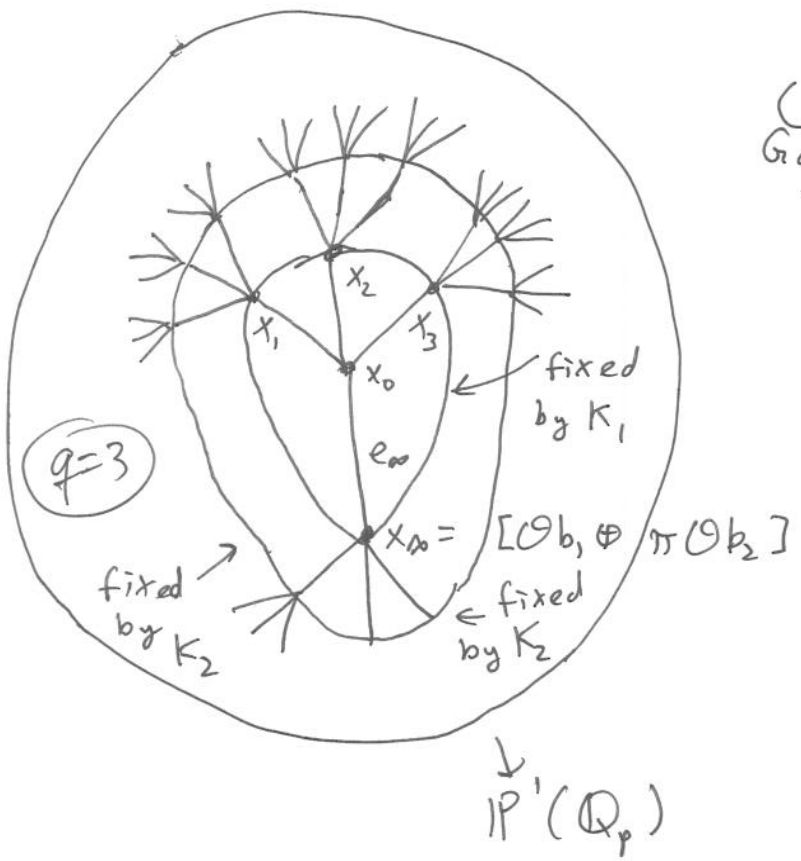 Ga
x₂
x₁
x₃
x₀
fixed
by K₁
e∞
q=3
x∞ = [𝒪b₁ ⊕ π𝒪b₂]
fixed
by K₂
← fixed
by K₂
↓
ℙ¹(ℚₚ)